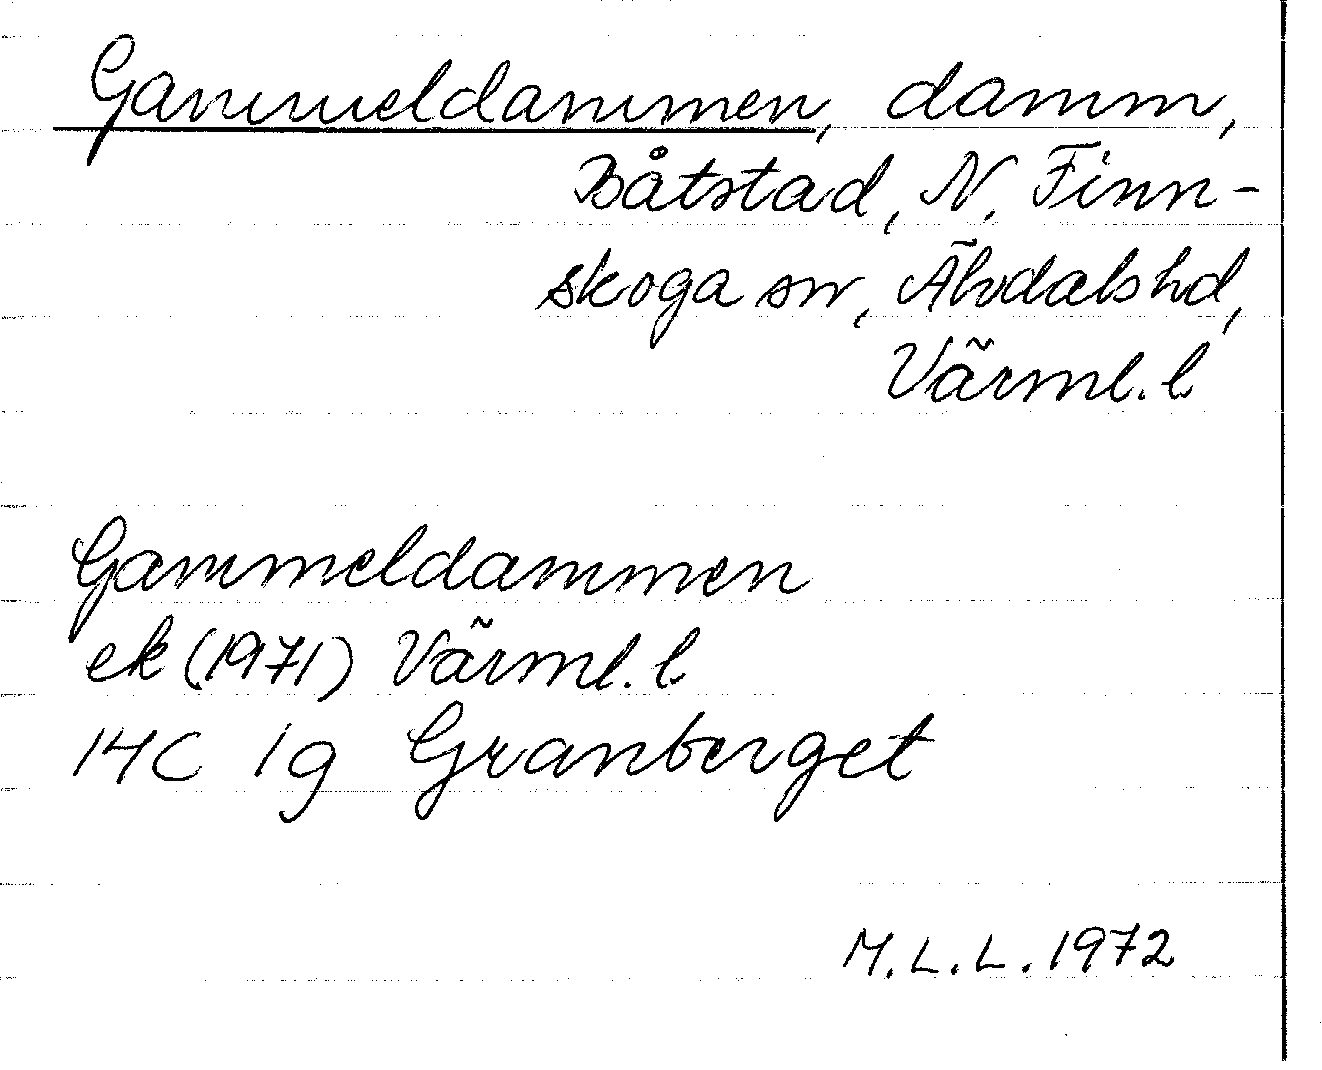 Gammeldammen, damm,
Båtstad, N. Finn-
skoga sn, Älvdals hd,
Värml. l
Gammeldammen
ek (1971) Värml. l
14C 1g Granberget
M.L.L. 1972